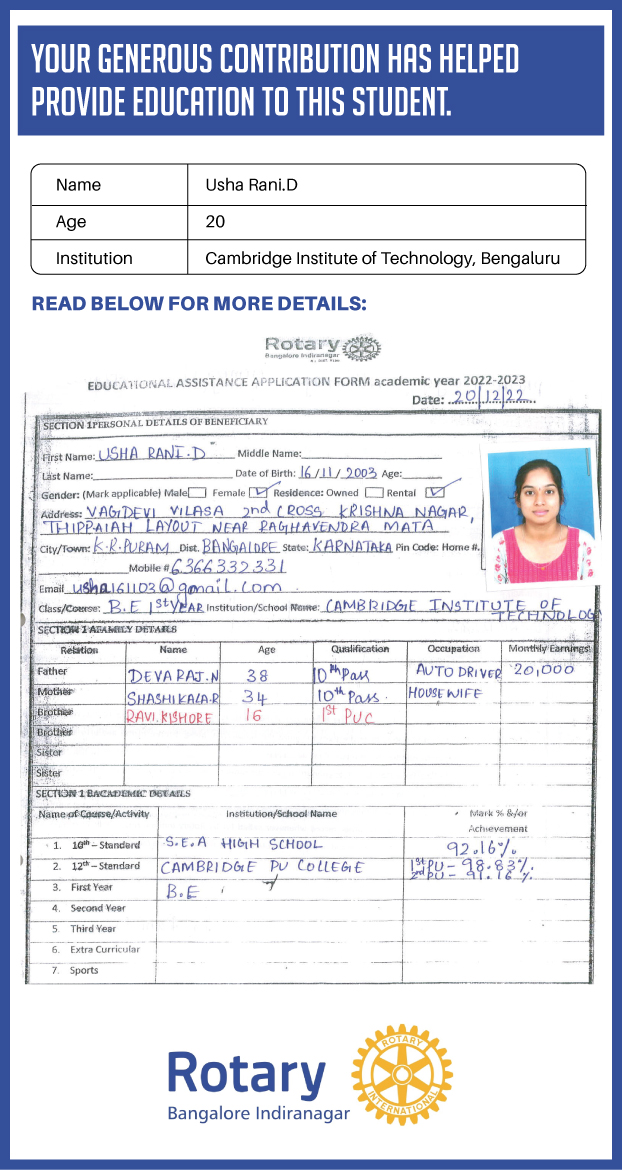 YOUR GENEROUS CONTRIBUTION HAS HELPED
PROVIDE EDUCATION TO THIS STUDENT.
Name Usha Rani.D
Age 20
Institution Cambridge Institute of Technology, Bengaluru
READ BELOW FOR MORE DETAILS:
Rotary
Bangalore Indiranagar
EDUCATIONAL ASSISTANCE APPLICATION FORM academic year 2022-2023
Date: 20/12/22
SECTION 1 PERSONAL DETAILS OF BENEFICIARY
First Name: USHA RANI.D Middle Name:
Last Name: Date of Birth: 16/11/2003 Age:
Gender: (Mark applicable) Male Female Residence: Owned Rental
Address: VAGIDEVI VILASA 2nd CROSS KRISHNA NAGAR,
THIPPAIAH LAYOUT NEAR RAGHAVENDRA MATA
City/Town: K.R.PURAM Dist. BANGALORE State: KARNATAKA Pin Code: Home #.
Mobile # 6366332331
Email usha161103@gmail.com
Class/Course: B.E 1st YEAR Institution/School Name: CAMBRIDGE INSTITUTE OF
TECHNOLOG
SECTION 1 A FAMILY DETAILS
Relation Name Age Qualification Occupation Monthly Earnings
Father DEVARAJ.N 38 10th Pass AUTO DRIVER 20,000
Mother SHASHIKALA.R 34 10th Pass. HOUSEWIFE
Brother RAVI.KISHORE 16 1st PUC
Brother
Sister
Sister
SECTION 1 B ACADEMIC DETAILS
Name of Course/Activity Institution/School Name Mark % &/or
Achievement
1. 10th – Standard S.E.A HIGH SCHOOL 92.16%
2. 12th – Standard CAMBRIDGE PU COLLEGE 1st PU – 98.83%.
2nd PU – 91.16%.
3. First Year B.E
4. Second Year
5. Third Year
6. Extra Curricular
7. Sports
Rotary
Bangalore Indiranagar
ROTARY
INTERNATIONAL